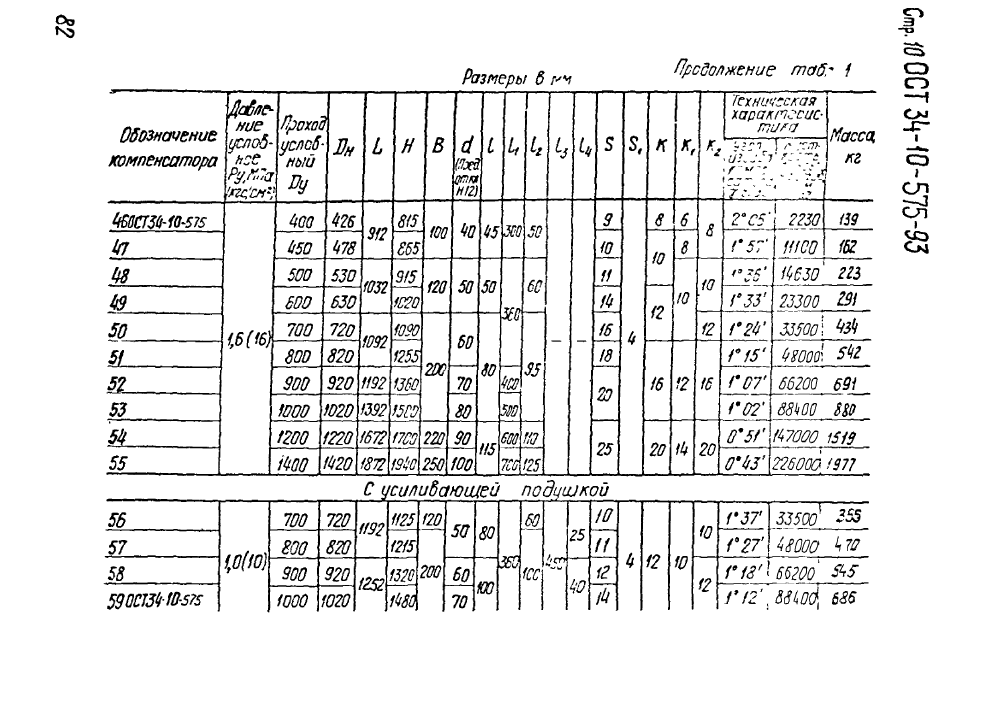 82
Стр. 10 ОСТ 34-10-575-93
Размеры в мм Продолжение таб. 1
Обозначение компенсатора | Давление условное Ру, МПа (кгс/см²) | Проход условный Dу | Dн | L | H | B | d | l | l₁ | l₂ | l₃ | l₄ | S | S₁ | К | К₁ | К₂ | Техническая характеристика | Масса, кг
46 ОСТ34-10-575 | 1,6(16) | 400 | 426 | 912 | 815 | 100 | 40 | 45 | 300 | 50 | – | – | 9 | 4 | 8 | 6 | 8 | 2°05' | 2230 | 139
47 | 450 | 478 | 865 | 10 | 10 | 8 | 1°57' | 11100 | 162
48 | 500 | 530 | 1032 | 915 | 120 | 50 | 50 | 360 | 60 | 11 | 10 | 10 | 1°36' | 14630 | 223
49 | 600 | 630 | 1020 | 14 | 12 | 1°33' | 23300 | 291
50 | 700 | 720 | 1092 | 1090 | 200 | 60 | 80 | 95 | 16 | 12 | 1°24' | 33500 | 434
51 | 800 | 820 | 1255 | 18 | 16 | 12 | 16 | 1°15' | 48000 | 542
52 | 900 | 920 | 1192 | 1360 | 70 | 400 | 20 | 1°07' | 66200 | 691
53 | 1000 | 1020 | 1392 | 1500 | 80 | 500 | 1°02' | 88400 | 880
54 | 1200 | 1220 | 1672 | 1700 | 220 | 90 | 115 | 600 | 110 | 25 | 20 | 14 | 20 | 0°51' | 147000 | 1519
55 | 1400 | 1420 | 1872 | 1940 | 250 | 100 | 700 | 125 | 0°43' | 226000 | 1977
С усиливающей подушкой
56 | 1,0(10) | 700 | 720 | 1192 | 1125 | 120 | 50 | 80 | 360 | 60 | 450 | 25 | 10 | 4 | 12 | 10 | 10 | 1°37' | 33500 | 355
57 | 800 | 820 | 1215 | 200 | 100 | 11 | 1°27' | 48000 | 470
58 | 900 | 920 | 1252 | 1320 | 60 | 100 | 40 | 12 | 12 | 1°18' | 66200 | 545
59 ОСТ34-10-575 | 1000 | 1020 | 1480 | 70 | 14 | 1°12' | 88400 | 686